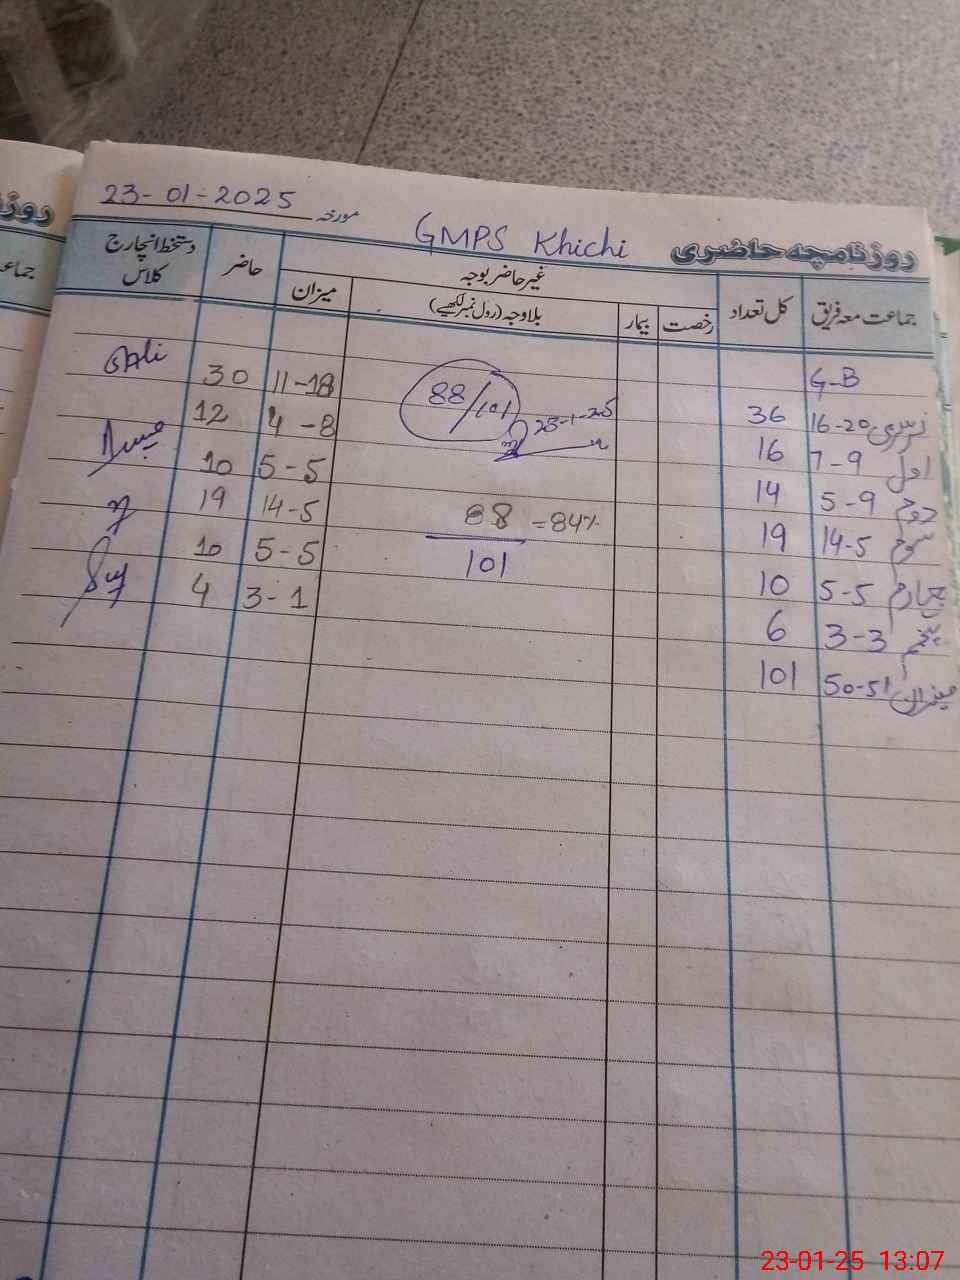 23-01-2025 مورخہ
GMPS Khichi
روزنامچہ حاضری
جماعت معہ فریق کل تعداد غیر حاضر بوجہ حاضر دستخط انچارج کلاس
رخصت بیمار بلاوجہ (رول نمبر لکھیے) میزان
G-B
نرسری 16-20 36 11-18 30
اول 7-9 16 4-8 12
دوم 5-9 14 5-5 10
سوم 14-5 19 14-5 19
چہارم 5-5 10 5-5 10
پنجم 3-3 6 3-1 4
میزان 50-51 101
88/101
88/101 = 84%
روز
جماعت
23-01-25 13:07